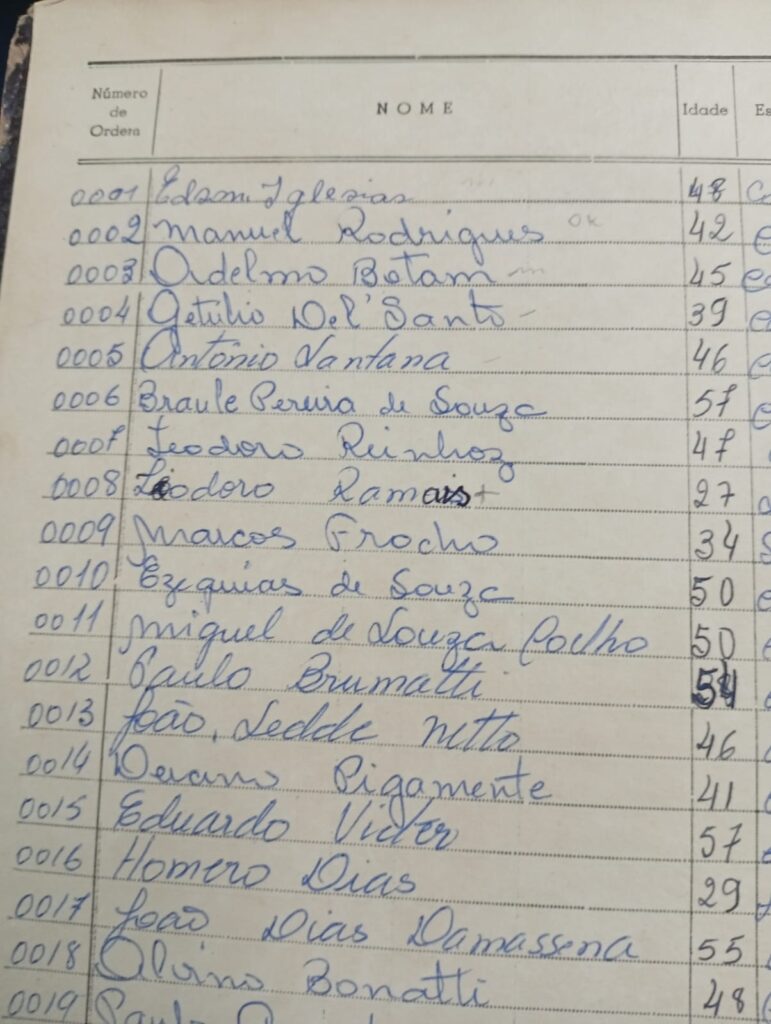 Número de Ordem NOME Idade Es
0001 Edson Iglesias 48
0002 Manuel Rodrigues OK 42 e
0003 Ordelmo Botam 45
0004 Getúlio Del'Santo 39 e
0005 Antônio Santana 46 e
0006 Braule Pereira de Souza 57 e
0007 Teodoro Reinhoz 47
0008 Teodoro Ramais 27
0009 Marcos Frocho 34
0010 Ezequias de Souza 50 e
0011 Miguel de Souza Coelho 50 e
0012 Paulo Brumatti 54
0013 João Ledde Netto 46
0014 Pigamente 41
0015 Eduardo Victer 57
0016 Homero Dias 29
0017 João Dias Damassena 55
0018 Alvino Bonatti 48
0019 Paulo